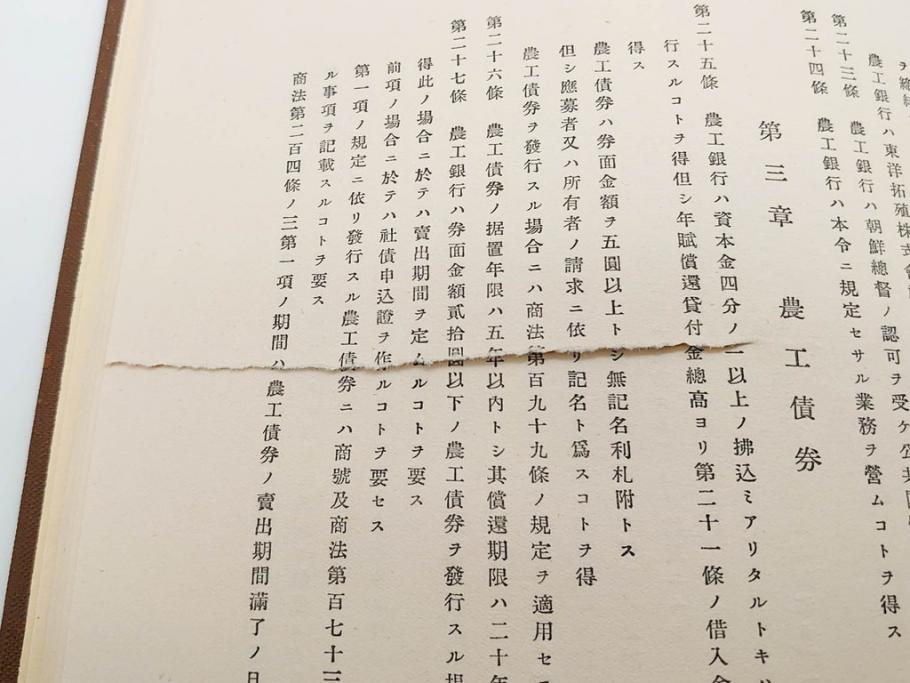 農工銀行ハ東洋拓殖株式會
第二十三條　農工銀行ハ朝鮮總督ノ認可ヲ受ケ公共
第二十四條　農工銀行ハ本令ニ規定セサル業務ヲ營ムコトヲ得ス
第三章　農工債券
第二十五條　農工銀行ハ資本金四分ノ一以上ノ拂込ミアリタルトキハ
行スルコトヲ得但シ年賦償還貸付金總高ヨリ第二十一條ノ借入金
得ス
農工債券ハ券面金額ヲ五圓以上トシ無記名利札附トス
但シ應募者又ハ所有者ノ請求ニ依リ記名ト爲スコトヲ得
農工債券ヲ發行スル場合ニハ商法第百九十九條ノ規定ヲ適用セ
第二十六條　農工債券ノ据置年限ハ五年以内トシ其償還期限ハ二十年
第二十七條　農工銀行ハ券面金額貳拾圓以下ノ農工債券ヲ發行スル場
得此ノ場合ニ於テハ賣出期間ヲ定ムルコトヲ要ス
前項ノ場合ニ於テハ社債申込證ヲ作ルコトヲ要セス
第一項ノ規定ニ依リ發行スル農工債券ニハ商號及商法第百七十三
ル事項ヲ記載スルコトヲ要ス
商法第二百四條ノ三第一項ノ期間ハ農工債券ノ賣出期間滿了ノ日